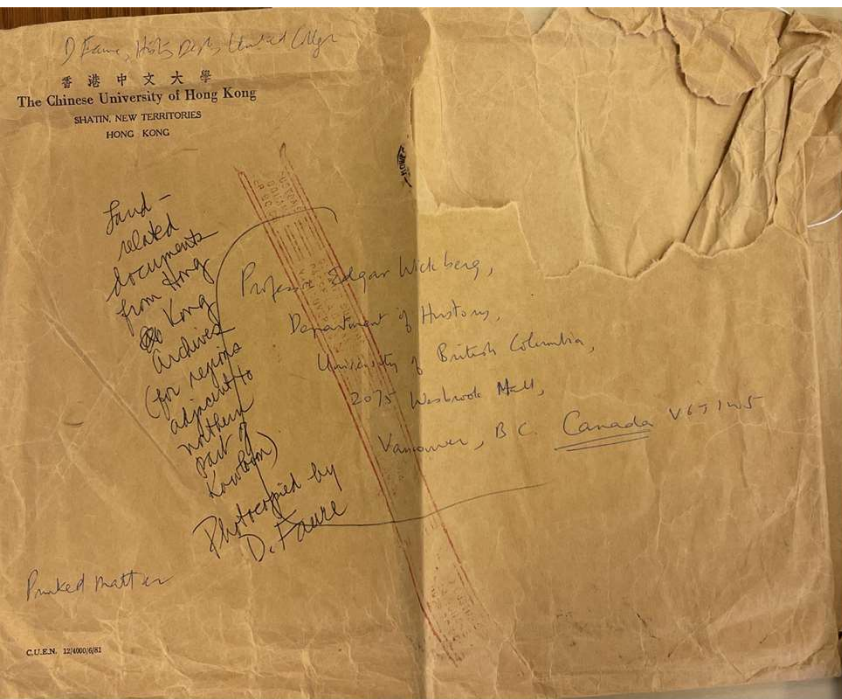 D Faure, Hist. Dept., United College
香港中文大學
The Chinese University of Hong Kong
SHATIN, NEW TERRITORIES
HONG KONG
Land-
related
documents
from Hong
Kong
Archives
(for regions
adjacent to
northern
part of
Kowloon)
Photocopied by
D. Faure
Professor Edgar Wickberg,
Department of History,
University of British Columbia,
2075 Wesbrook Mall,
Vancouver, B C. Canada V6T 1W5
Printed matter
C.U.E.N. 12/4000/6/81